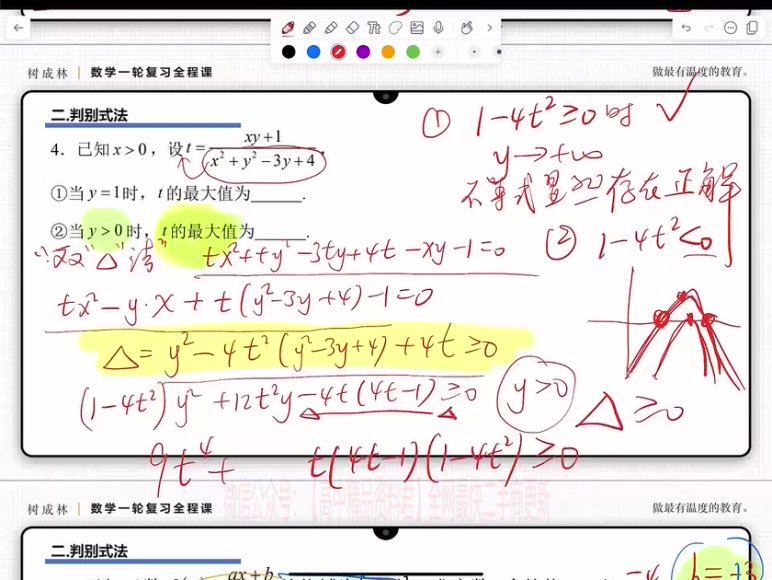 树成林 | 数学一轮复习全程课
做最有温度的教育。
二.判别式法
4. 已知x>0, 设t=\frac{xy+1}{x²+y²-3y+4}.
①当y=1时, t的最大值为______.
②当y>0时, t的最大值为______.
"双"△"法"
tx²+ty²-3ty+4t-xy-1=0
tx²-y·x+t(y²-3y+4)-1=0
△=y²-4t²(y²-3y+4)+4t≥0
(1-4t²)y²+12t²y-4t(4t-1)≥0
y>0
9t⁴+ t(4t-1)(1-4t²)≥0
① 1-4t²≥0时 ✓
y→+∞
不等式 存在正解
② 1-4t²<0
△≥0
微信公众号:【高中精品资料君】全网最快二手商更新
树成林 | 数学一轮复习全程课
做最有温度的教育。
二.判别式法
ax+b
-4
b=±3